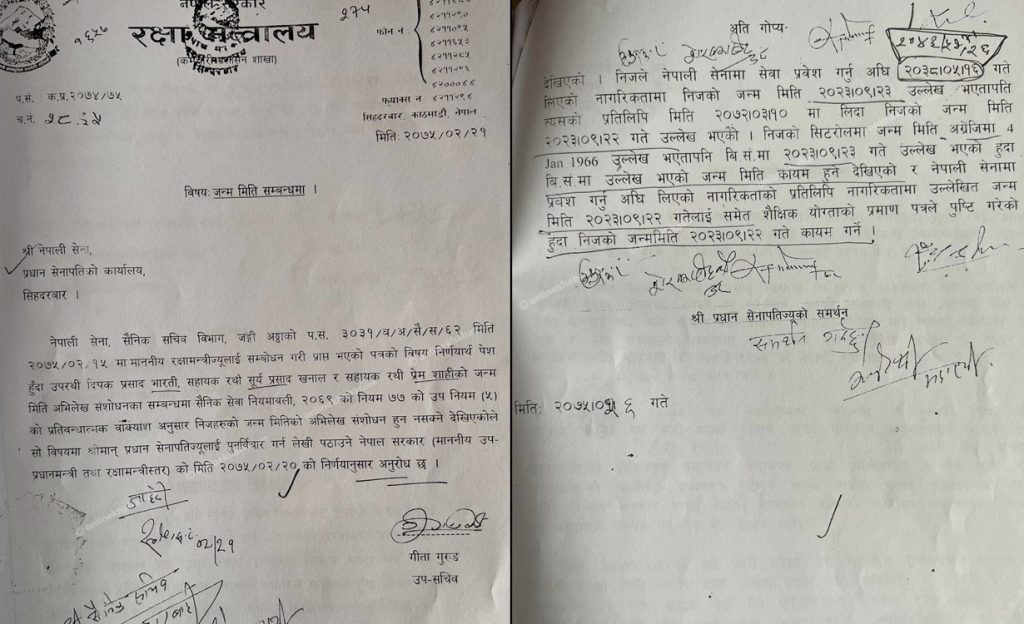 नेपाल सरकार
रक्षा मन्त्रालय
२७५
फोन नं.
४२११२९०
४२११२८५
प.सं. : क.प्र.२०७४/७५
च.नं.
फ्याक्स नं. ४२११२९४
सिंहदरबार, काठमाडौं, नेपाल
मिति: २०७५/०२/२१
विषय: जन्म मिति सम्बन्धमा ।
श्री नेपाली सेना,
प्रधान सेनापतिको कार्यालय,
सिंहदरबार ।
नेपाली सेना, सैनिक सचिव विभाग, जङ्गी अड्डाको प.सं. ३०३१/व/अ/सै/स/६२ मिति
२०७५/०२/१५ मा माननीय रक्षामन्त्रीज्यूलाई सम्बोधन गरी प्राप्त भएको पत्रको विषय निर्णयार्थ पेश
हुँदा उपरथी दिपक प्रसाद भारती, सहायक रथी सूर्य प्रसाद खनाल र सहायक रथी प्रेम शाहीको जन्म
मिति अभिलेख संशोधनका सम्बन्धमा सैनिक सेवा नियमावली, २०६९ को नियम ७७ को उप नियम (५)
को प्रतिवन्धात्मक वाक्यांश अनुसार निजहरुको जन्म मितिको अभिलेख संशोधन हुन नसक्ने देखिएकोले
सो विषयमा श्रीमान् प्रधान सेनापतिज्यूलाई पुनर्विचार गर्न लेखी पठाउने नेपाल सरकार (माननीय उप-
प्रधानमन्त्री तथा रक्षामन्त्रीस्तर) को मिति २०७५/०२/२० को निर्णयानुसार अनुरोध छ ।
०२/२१
गीता गुरुङ
उप-सचिव
अति गोप्य
देखिएको । निजले नेपाली सेनामा सेवा प्रवेश गर्नु अघि २०३८।०५।१६ गते
लिएको नागरिकतामा निजको जन्म मिति २०२३।०९।२३ उल्लेख भएतापति
त्यसको प्रतिलिपि मिति २०७२।०३।१० मा लिदा निजको जन्म मिति
२०२३।०९।२२ गते उल्लेख भएको । निजको सिटरोलमा जन्म मिति अंग्रेजिमा 4
Jan 1966 उल्लेख भएतापनि बि.सं.मा २०२३।०९।२३ गते उल्लेख भएको हुदा
बि.सं.मा उल्लेख भएको जन्म मिति कायम हुने देखिएको र नेपाली सेनामा
प्रवेश गर्नु अघि लिएको नागरिकताको प्रतिलिपि नागरिकतामा उल्लेखित जन्म
मिति २०२३।०९।२२ गतेलाई समेत शैक्षिक योग्ताको प्रमाण पत्रले पुष्टि गरेको
हुदा निजको जन्ममिति २०२३।०९।२२ गते कायम गर्ने ।
श्री प्रधान सेनापतिज्यूको समर्थन
समर्थन गर्दछु
मिति: २०७५।०२। ६ गते